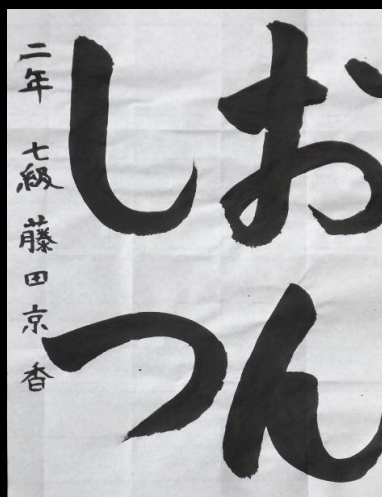 おん
しつ
二年 七級 藤田京香